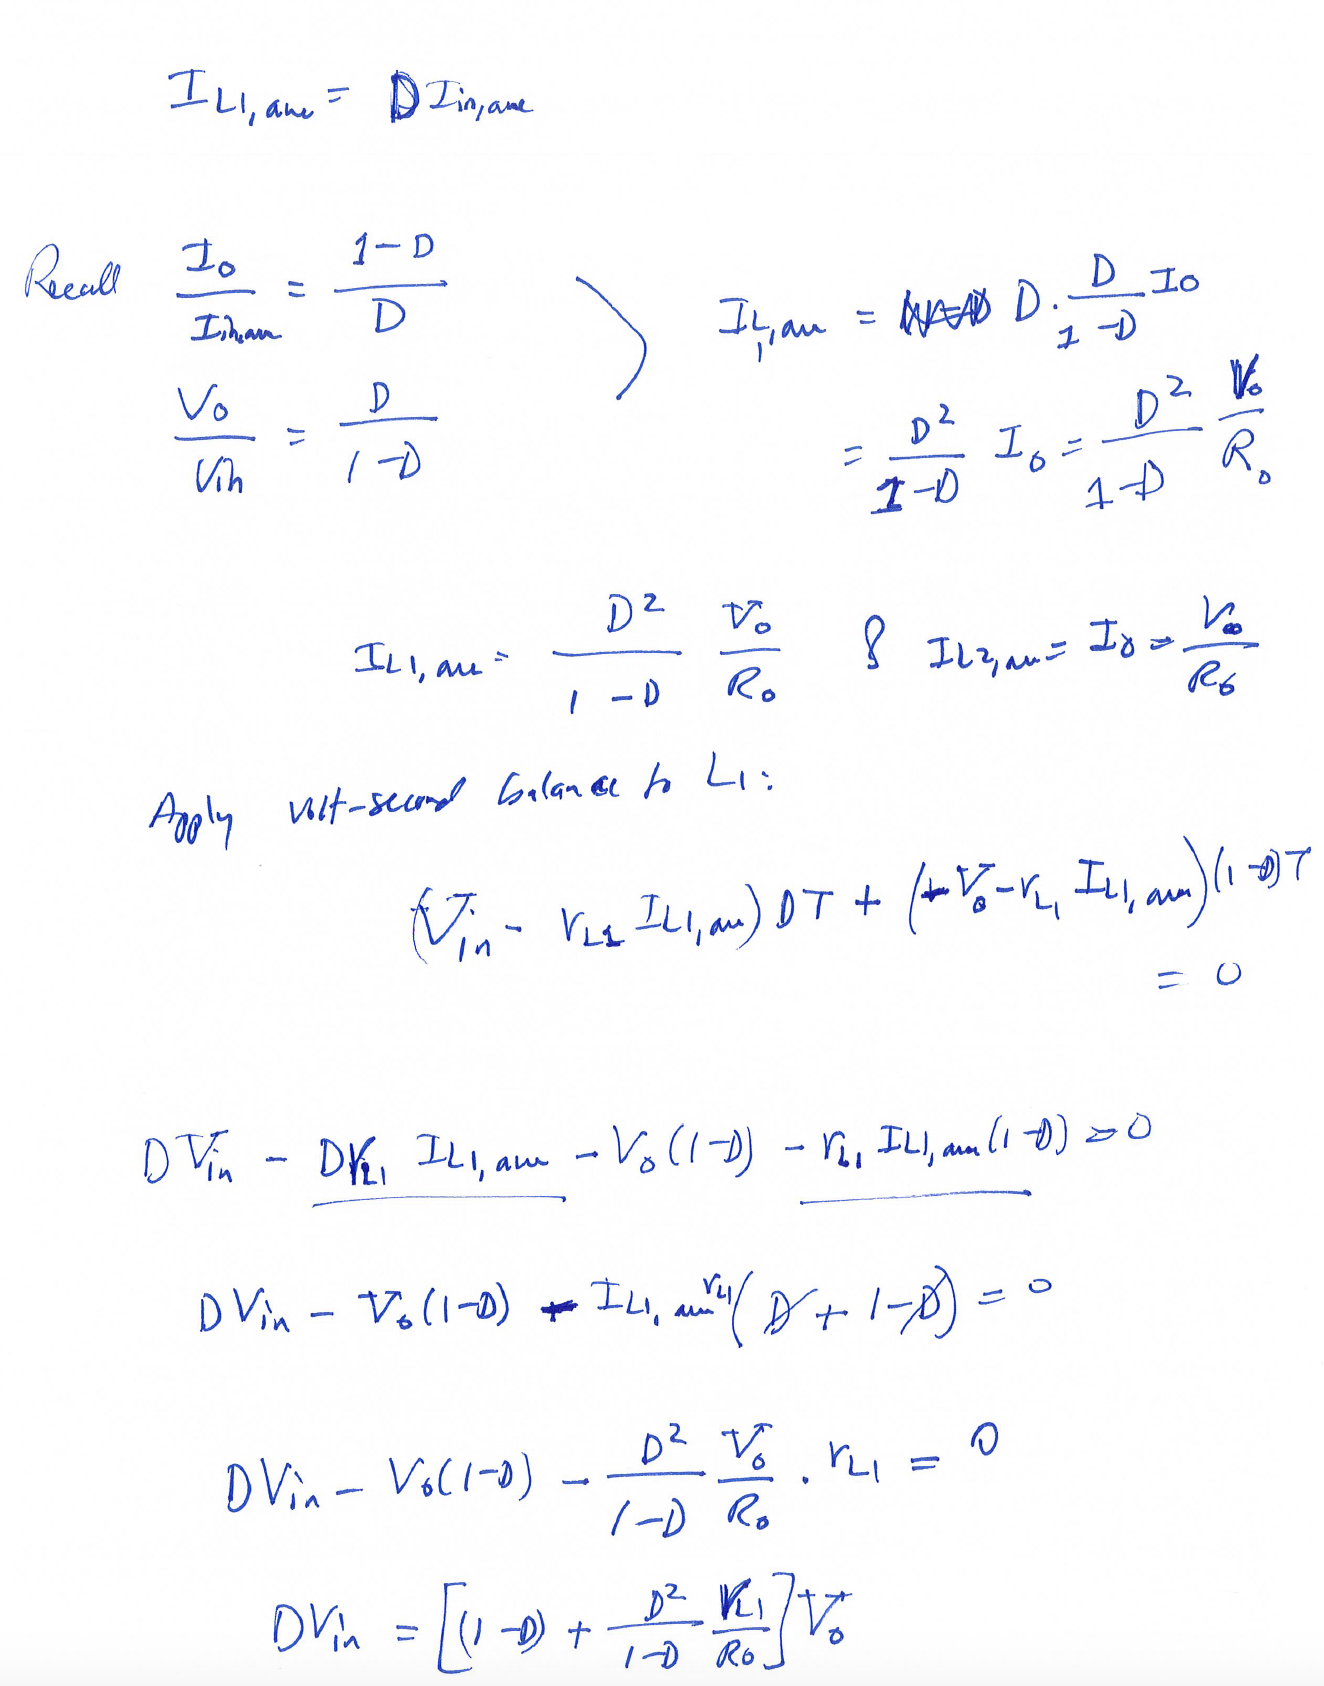 I_{L1,ave} = D I_{in,ave}
Recall I_o / I_{in,ave} = (1-D) / D
V_o / V_in = D / (1-D)
I_{L1,ave} = D · D/(1-D) I_o
= D²/(1-D) I_o = D²/(1-D) V_o/R_o
I_{L1,ave} = D²/(1-D) V_o/R_o & I_{L2,ave} = I_o = V_o/R_o
Apply volt-second balance to L1:
(V_in - r_{L1} I_{L1,ave}) DT + (-V_o - r_{L1} I_{L1,ave})(1-D)T
= 0
D V_in - D r_{L1} I_{L1,ave} - V_o(1-D) - r_{L1} I_{L1,ave}(1-D) = 0
D V_in - V_o(1-D) - I_{L1,ave} r_{L1} (D + 1-D) = 0
D V_in - V_o(1-D) - D²/(1-D) V_o/R_o · r_{L1} = 0
D V_in = [(1-D) + D²/(1-D) r_{L1}/R_o] V_o